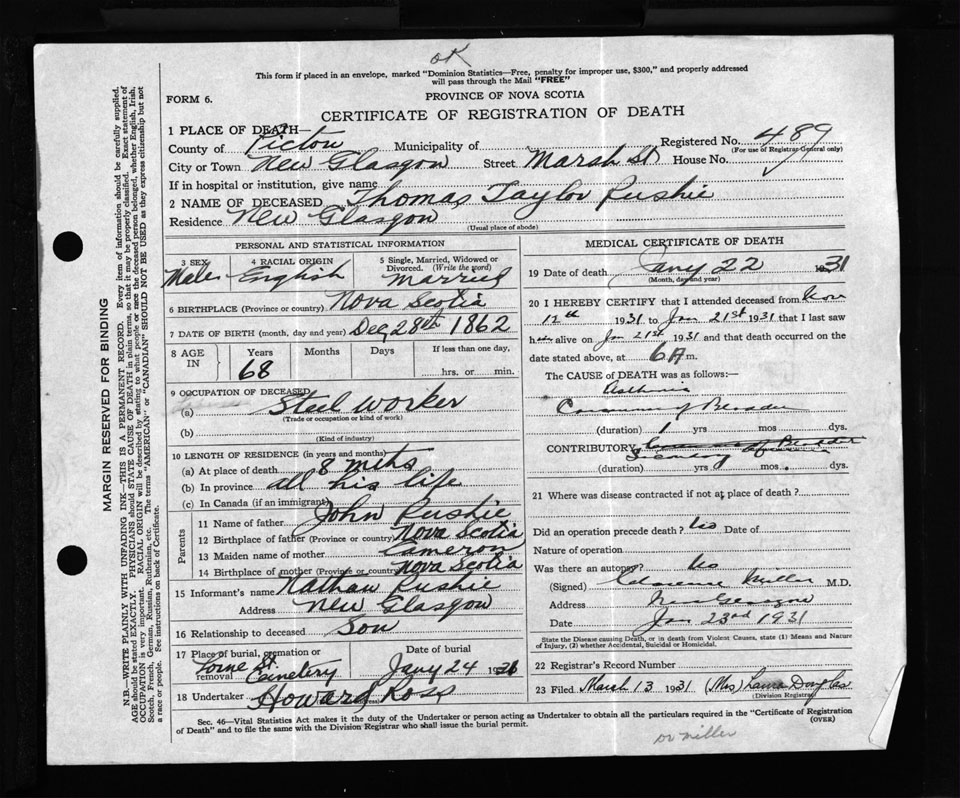 OK
This form if placed in an envelope, marked "Dominion Statistics—Free, penalty for improper use, $300," and properly addressed
will pass through the Mail "FREE"
FORM 6.
PROVINCE OF NOVA SCOTIA
CERTIFICATE OF REGISTRATION OF DEATH
1 PLACE OF DEATH—
County of Pictou Municipality of Registered No. 489
(For use of Registrar General only)
City or Town New Glasgow Street Marsh St House No.
If in hospital or institution, give name
2 NAME OF DECEASED Thomas Taylor Rushie
Residence New Glasgow
(Usual place of abode)
PERSONAL AND STATISTICAL INFORMATION
3 SEX 4 RACIAL ORIGIN 5 Single, Married, Widowed or Divorced. (Write the word)
Male English Married
6 BIRTHPLACE (Province or country) Nova Scotia
7 DATE OF BIRTH (month, day and year) Dec 28th 1862
8 AGE IN Years Months Days If less than one day,
68 hrs. or min.
9 OCCUPATION OF DECEASED
(a) Steel worker
(Trade or occupation or kind of work)
(b)
(Kind of industry)
10 LENGTH OF RESIDENCE (in years and months)
(a) At place of death 8 mths
(b) In province all his life
(c) In Canada (if an immigrant)
Parents
11 Name of father John Rushie
12 Birthplace of father (Province or country) Nova Scotia
13 Maiden name of mother Cameron
14 Birthplace of mother (Province or country) Nova Scotia
15 Informant's name Nathan Rushie
Address New Glasgow
16 Relationship to deceased Son
17 Place of burial, cremation or removal Date of burial
Lorne St. Cemetery Jany 24 1931
18 Undertaker Howard Ross
MEDICAL CERTIFICATE OF DEATH
19 Date of death Jany 22 1931
(Month, day and year)
20 I HEREBY CERTIFY that I attended deceased from Nov
12th 1931 to Jan 21st 1931 that I last saw
h alive on Jan 21st 1931 and that death occurred on the
date stated above, at 6 A m.
The CAUSE OF DEATH was as follows:—
Asthenia
of Bladder
(duration) 1 yrs mos dys.
CONTRIBUTORY
(duration) yrs mos. dys.
21 Where was disease contracted if not at place of death?
Did an operation precede death? No Date of
Nature of operation
Was there an autopsy? No
(Signed) Clarence Miller M.D.
Address New Glasgow
Date Jan 23rd 1931
State the Disease causing Death, or in death from Violent Causes, state (1) Means and Nature
of Injury, (2) whether Accidental, Suicidal or Homicidal.
22 Registrar's Record Number
23 Filed March 13 1931 (Mrs) Laura Douglas
(Division Registrar)
Sec. 46—Vital Statistics Act makes it the duty of the Undertaker or person acting as Undertaker to obtain all the particulars required in the "Certificate of Registration
of Death" and to file the same with the Division Registrar who shall issue the burial permit.
(OVER)
Dr Miller
MARGIN RESERVED FOR BINDING
N.B.—WRITE PLAINLY WITH UNFADING INK—THIS IS A PERMANENT RECORD. Every item of information should be carefully supplied.
AGE should be stated EXACTLY. PHYSICIANS should STATE CAUSE OF DEATH in plain terms, so that it may be properly classified. Exact statement of
OCCUPATION is very important. RACIAL ORIGIN will be described by stating to what people or race the deceased person belonged, whether English, Irish,
Scotch, French, German, Russian, Ruthenian, etc. The terms "AMERICAN" or "CANADIAN" SHOULD NOT BE USED as they express citizenship but not
a race or people. See instructions on back of Certificate.